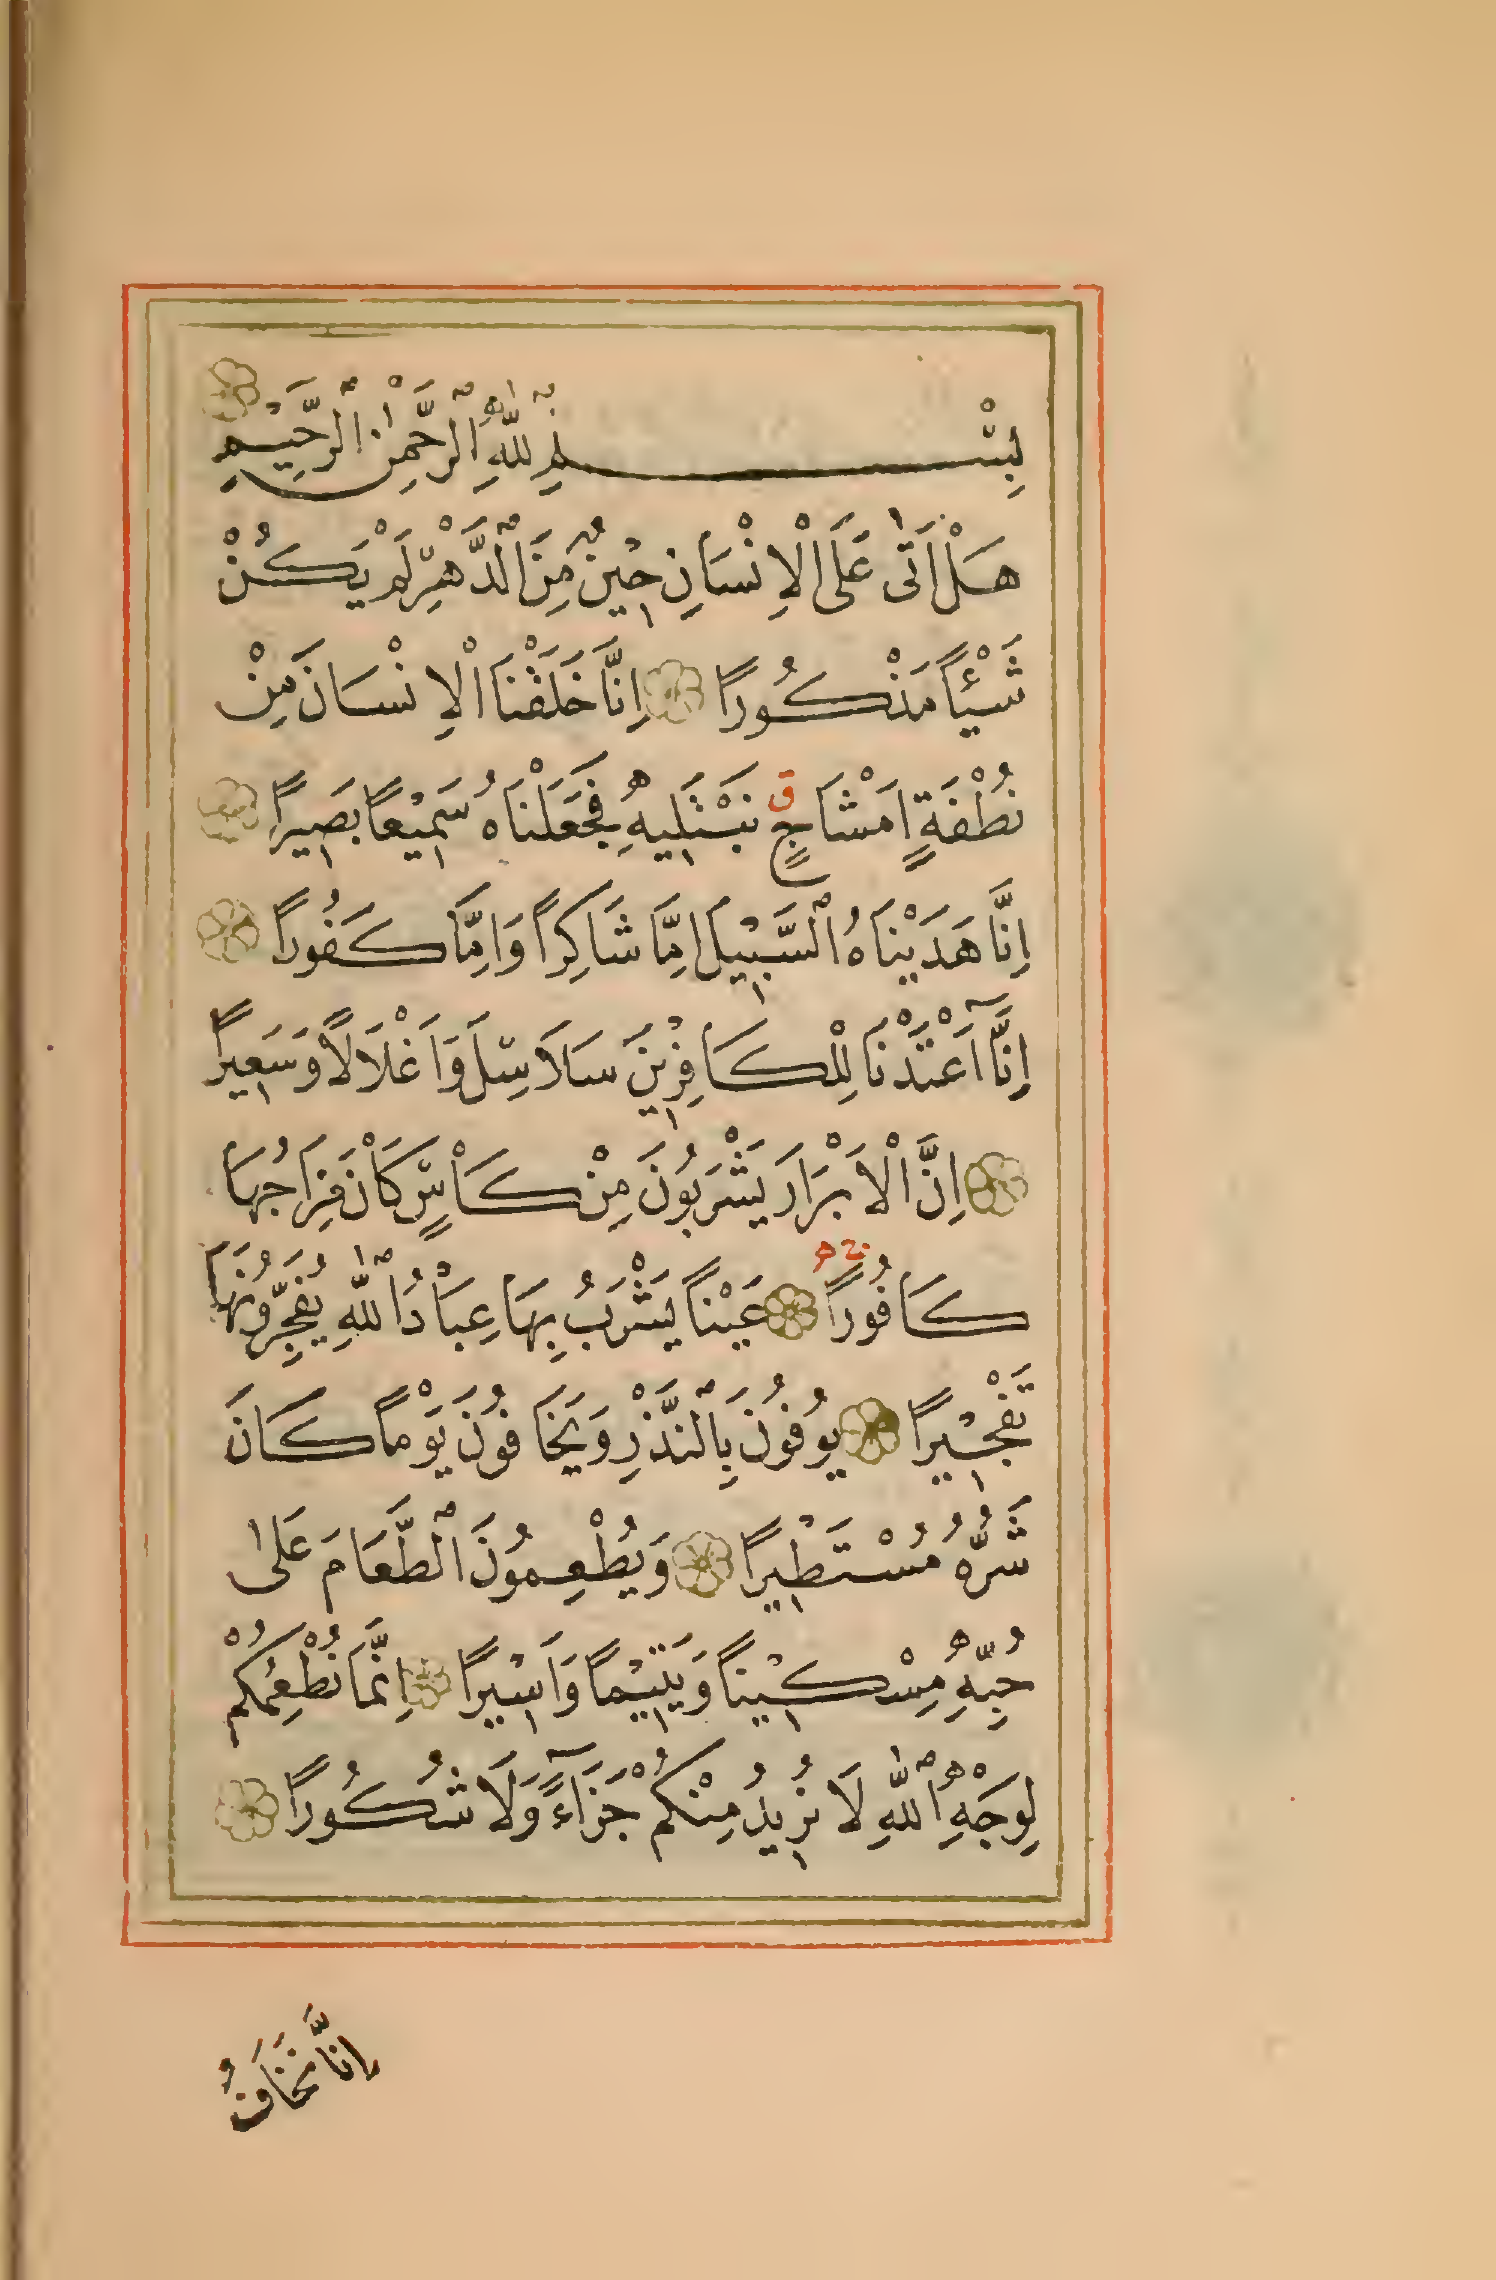 بِسْمِ اللّٰهِ الرَّحْمٰنِ الرَّحِيْمِ
هَلْ اَتٰى عَلَى الْاِنْسَانِ حِيْنٌ مِنَ الدَّهْرِ لَمْ يَكُنْ
شَيْئًا مَذْكُورًا ۝ اِنَّا خَلَقْنَا الْاِنْسَانَ مِنْ
نُطْفَةٍ اَمْشَاجٍ ق نَبْتَلِيهِ فَجَعَلْنَاهُ سَمِيْعًا بَصِيرًا ۝
اِنَّا هَدَيْنَاهُ السَّبِيْلَ اِمَّا شَاكِرًا وَاِمَّا كَفُورًا ۝
اِنَّآ اَعْتَدْنَا لِلْكَافِرِيْنَ سَلَاسِلَ وَاَغْلَالًا وَسَعِيرًا
۝ اِنَّ الْاَبْرَارَ يَشْرَبُونَ مِنْ كَاْسٍ كَانَ مِزَاجُهَا
كَافُورًا ۝ عَيْنًا يَشْرَبُ بِهَا عِبَادُ اللّٰهِ يُفَجِّرُونَهَا
تَفْجِيْرًا ۝ يُوفُونَ بِالنَّذْرِ وَيَخَافُونَ يَوْمًا كَانَ
شَرُّهُ مُسْتَطِيْرًا ۝ وَيُطْعِمُونَ الطَّعَامَ عَلٰى
حُبِّهِ مِسْكِيْنًا وَيَتِيْمًا وَاَسِيْرًا ۝ اِنَّمَا نُطْعِمُكُمْ
لِوَجْهِ اللّٰهِ لَا نُرِيدُ مِنْكُمْ جَزَآءً وَلَا شُكُورًا ۝
اِنَّا نَخَافُ